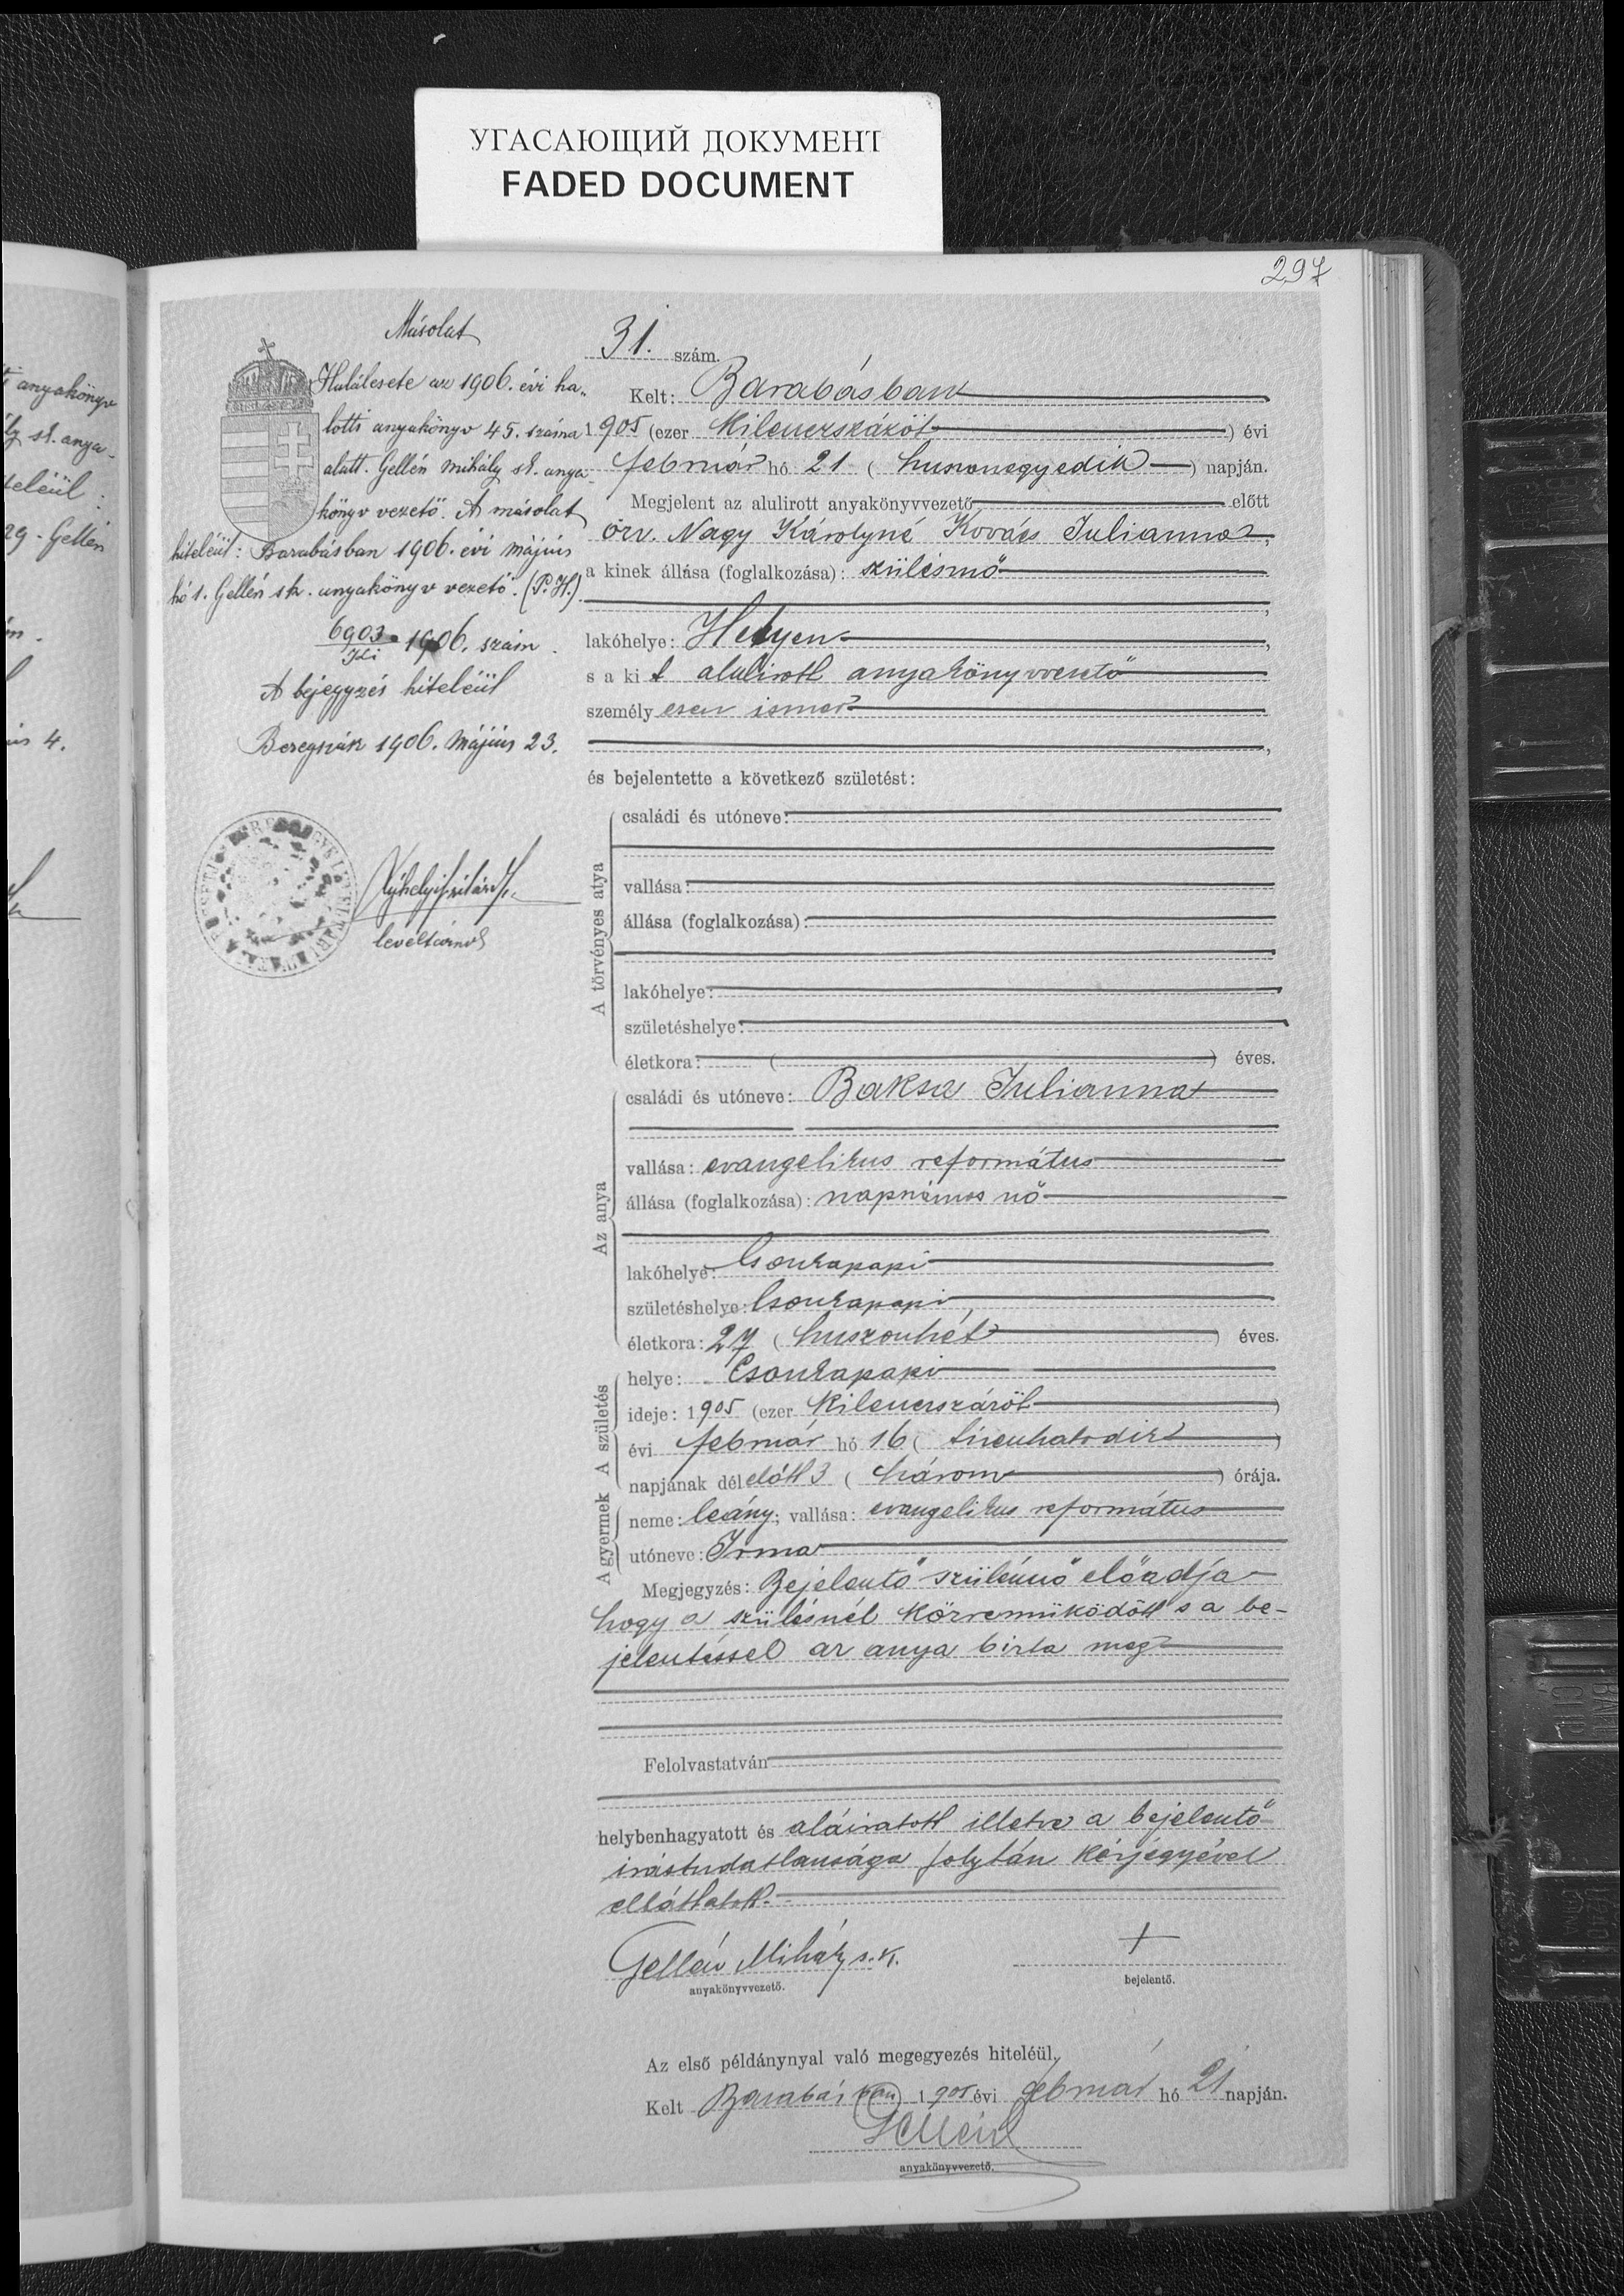 УГАСАЮЩИЙ ДОКУМЕНТ
FADED DOCUMENT
297
Másolat
Halálesete az 1906. évi ha„
lotti anyakönyv 45. száma
alatt. Gellén Mihály sk. anya„
könyv vezető. A másolat
hiteléül: Barabásban 1906. évi május
hó 1. Gellén sk. anyakönyv vezető. (P. H.)
6903 1906. szám
A bejegyzés hiteléül
Beregszász 1906. május 23.
levéltárnok
31. szám.
Kelt: Barabásban
1905 (ezer kilenczszázöt) évi
február hó 21 (huszonegyedik) napján.
Megjelent az alulirott anyakönyvvezető előtt
özv. Nagy Károlyné Kovács Julianna,
a kinek állása (foglalkozása): szülésznő
lakóhelye: Helyen
s a kit alulirott anyakönyvvezető
személyesen ismer
és bejelentette a következő születést:
A törvényes atya
családi és utóneve:
vallása:
állása (foglalkozása):
lakóhelye:
születéshelye:
életkora: ( ) éves.
Az anya
családi és utóneve: Baksa Julianna
vallása: evangelikus református
állása (foglalkozása): napszámos nő
lakóhelye: Csonkapapi
születéshelye: Csonkapapi
életkora: 27 (huszonhét) éves.
A születés
helye: Csonkapapi
ideje: 1905 (ezer kilenczszázöt)
évi február hó 16 (tizenhatodik)
napjának délelőtt 3 (három) órája.
A gyermek
neme: leány; vallása: evangelikus református
utóneve: Irma
Megjegyzés: Bejelentő szülésznő előadja
hogy a szülésnél közreműködött s a be-
jelentéssel az anya bizta meg
Felolvastatván
helybenhagyatott és aláiratott illetve a bejelentő
irástudatlansága folytán kézjegyével
elláttatott.
Gellén Mihály s. k.
anyakönyvvezető.
+
bejelentő.
Az első példánynyal való megegyezés hiteléül,
Kelt Barabásban 1905 évi február hó 21 napján.
Gellén
anyakönyvvezető.